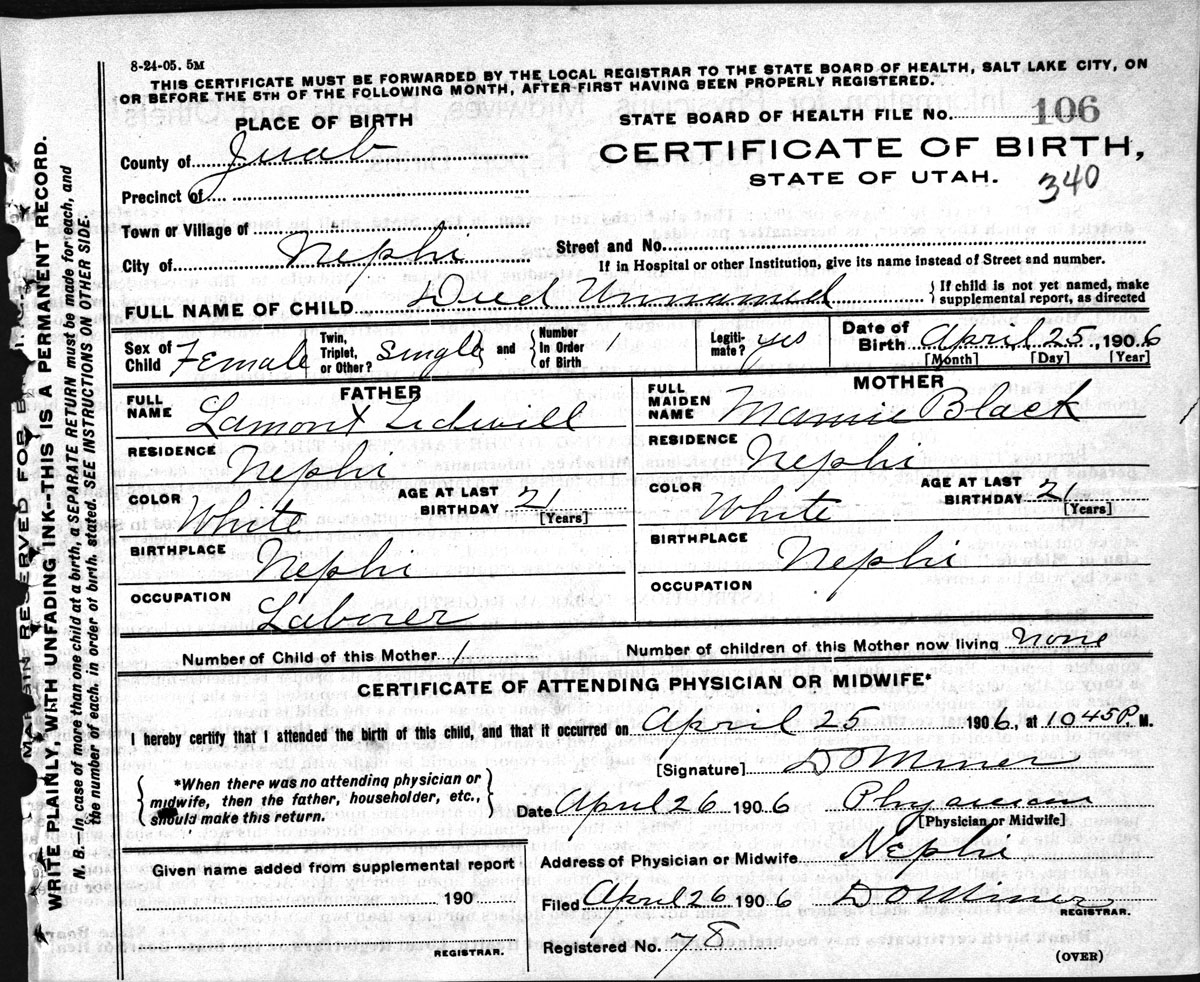 8-24-05. 5M
THIS CERTIFICATE MUST BE FORWARDED BY THE LOCAL REGISTRAR TO THE STATE BOARD OF HEALTH, SALT LAKE CITY, ON
OR BEFORE THE 5TH OF THE FOLLOWING MONTH, AFTER FIRST HAVING BEEN PROPERLY REGISTERED.
MARGIN RESERVED FOR
WRITE PLAINLY, WITH UNFADING INK--THIS IS A PERMANENT RECORD.
N. B.--In case of more than one child at a birth, a SEPARATE RETURN must be made for each, and
the number of each, in order of birth, stated. SEE INSTRUCTIONS ON OTHER SIDE.
PLACE OF BIRTH
STATE BOARD OF HEALTH FILE No. 106
County of Juab
CERTIFICATE OF BIRTH,
STATE OF UTAH. 340
Precinct of
Town or Village of
City of Nephi
Street and No.
If in Hospital or other Institution, give its name instead of Street and number.
FULL NAME OF CHILD Died Unnamed
If child is not yet named, make
supplemental report, as directed
Sex of Child Female
Twin, Triplet, or Other? single and Number In Order of Birth 1
Legitimate? yes
Date of Birth April 25, 1906
[Month] [Day] [Year]
FATHER
FULL NAME Lamont
RESIDENCE Nephi
COLOR White AGE AT LAST BIRTHDAY 21
[Years]
BIRTHPLACE Nephi
OCCUPATION Laborer
MOTHER
FULL MAIDEN NAME Mamie Black
RESIDENCE Nephi
COLOR White AGE AT LAST BIRTHDAY 21
[Years]
BIRTHPLACE Nephi
OCCUPATION
Number of Child of this Mother 1
Number of children of this Mother now living none
CERTIFICATE OF ATTENDING PHYSICIAN OR MIDWIFE*
I hereby certify that I attended the birth of this child, and that it occurred on April 25 1906, at 1045P. M.
[Signature] D O Miner
*When there was no attending physician or
midwife, then the father, householder, etc.,
should make this return.
Date April 26 1906 Physician
[Physician or Midwife]
Given name added from supplemental report
190
REGISTRAR.
Address of Physician or Midwife Nephi
Filed April 26 1906 D O Miner
REGISTRAR.
Registered No. 78
(OVER)